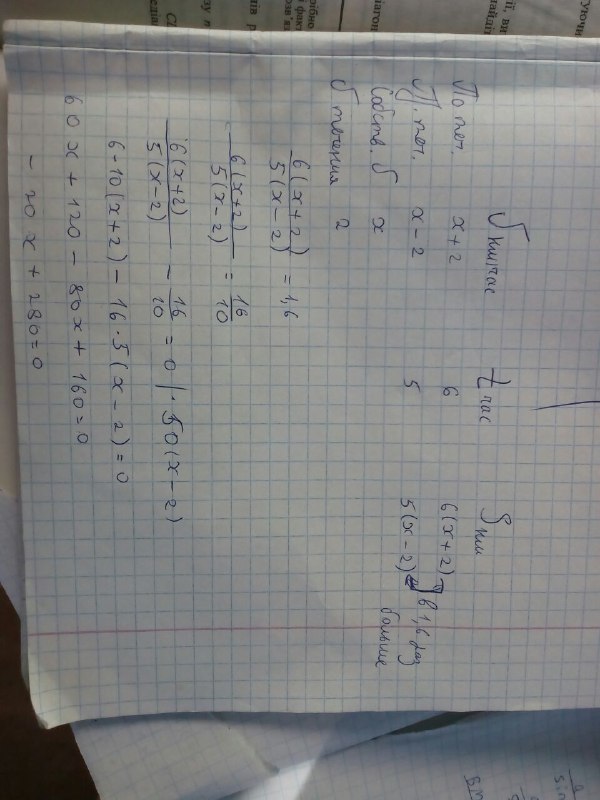 V км/час t час S км
По теч. x+2 6 6(x+2)
П. теч. x-2 5 5(x-2) в 1,6 раз больше
Собств. V x
V течения 2
6(x+2)/5(x-2) = 1,6
6(x+2)/5(x-2) = 16/10
6(x+2)/5(x-2) - 16/10 = 0 |·50(x-2)
6·10(x+2) - 16·5(x-2) = 0
60x + 120 - 80x + 160 = 0
- 20x + 280 = 0